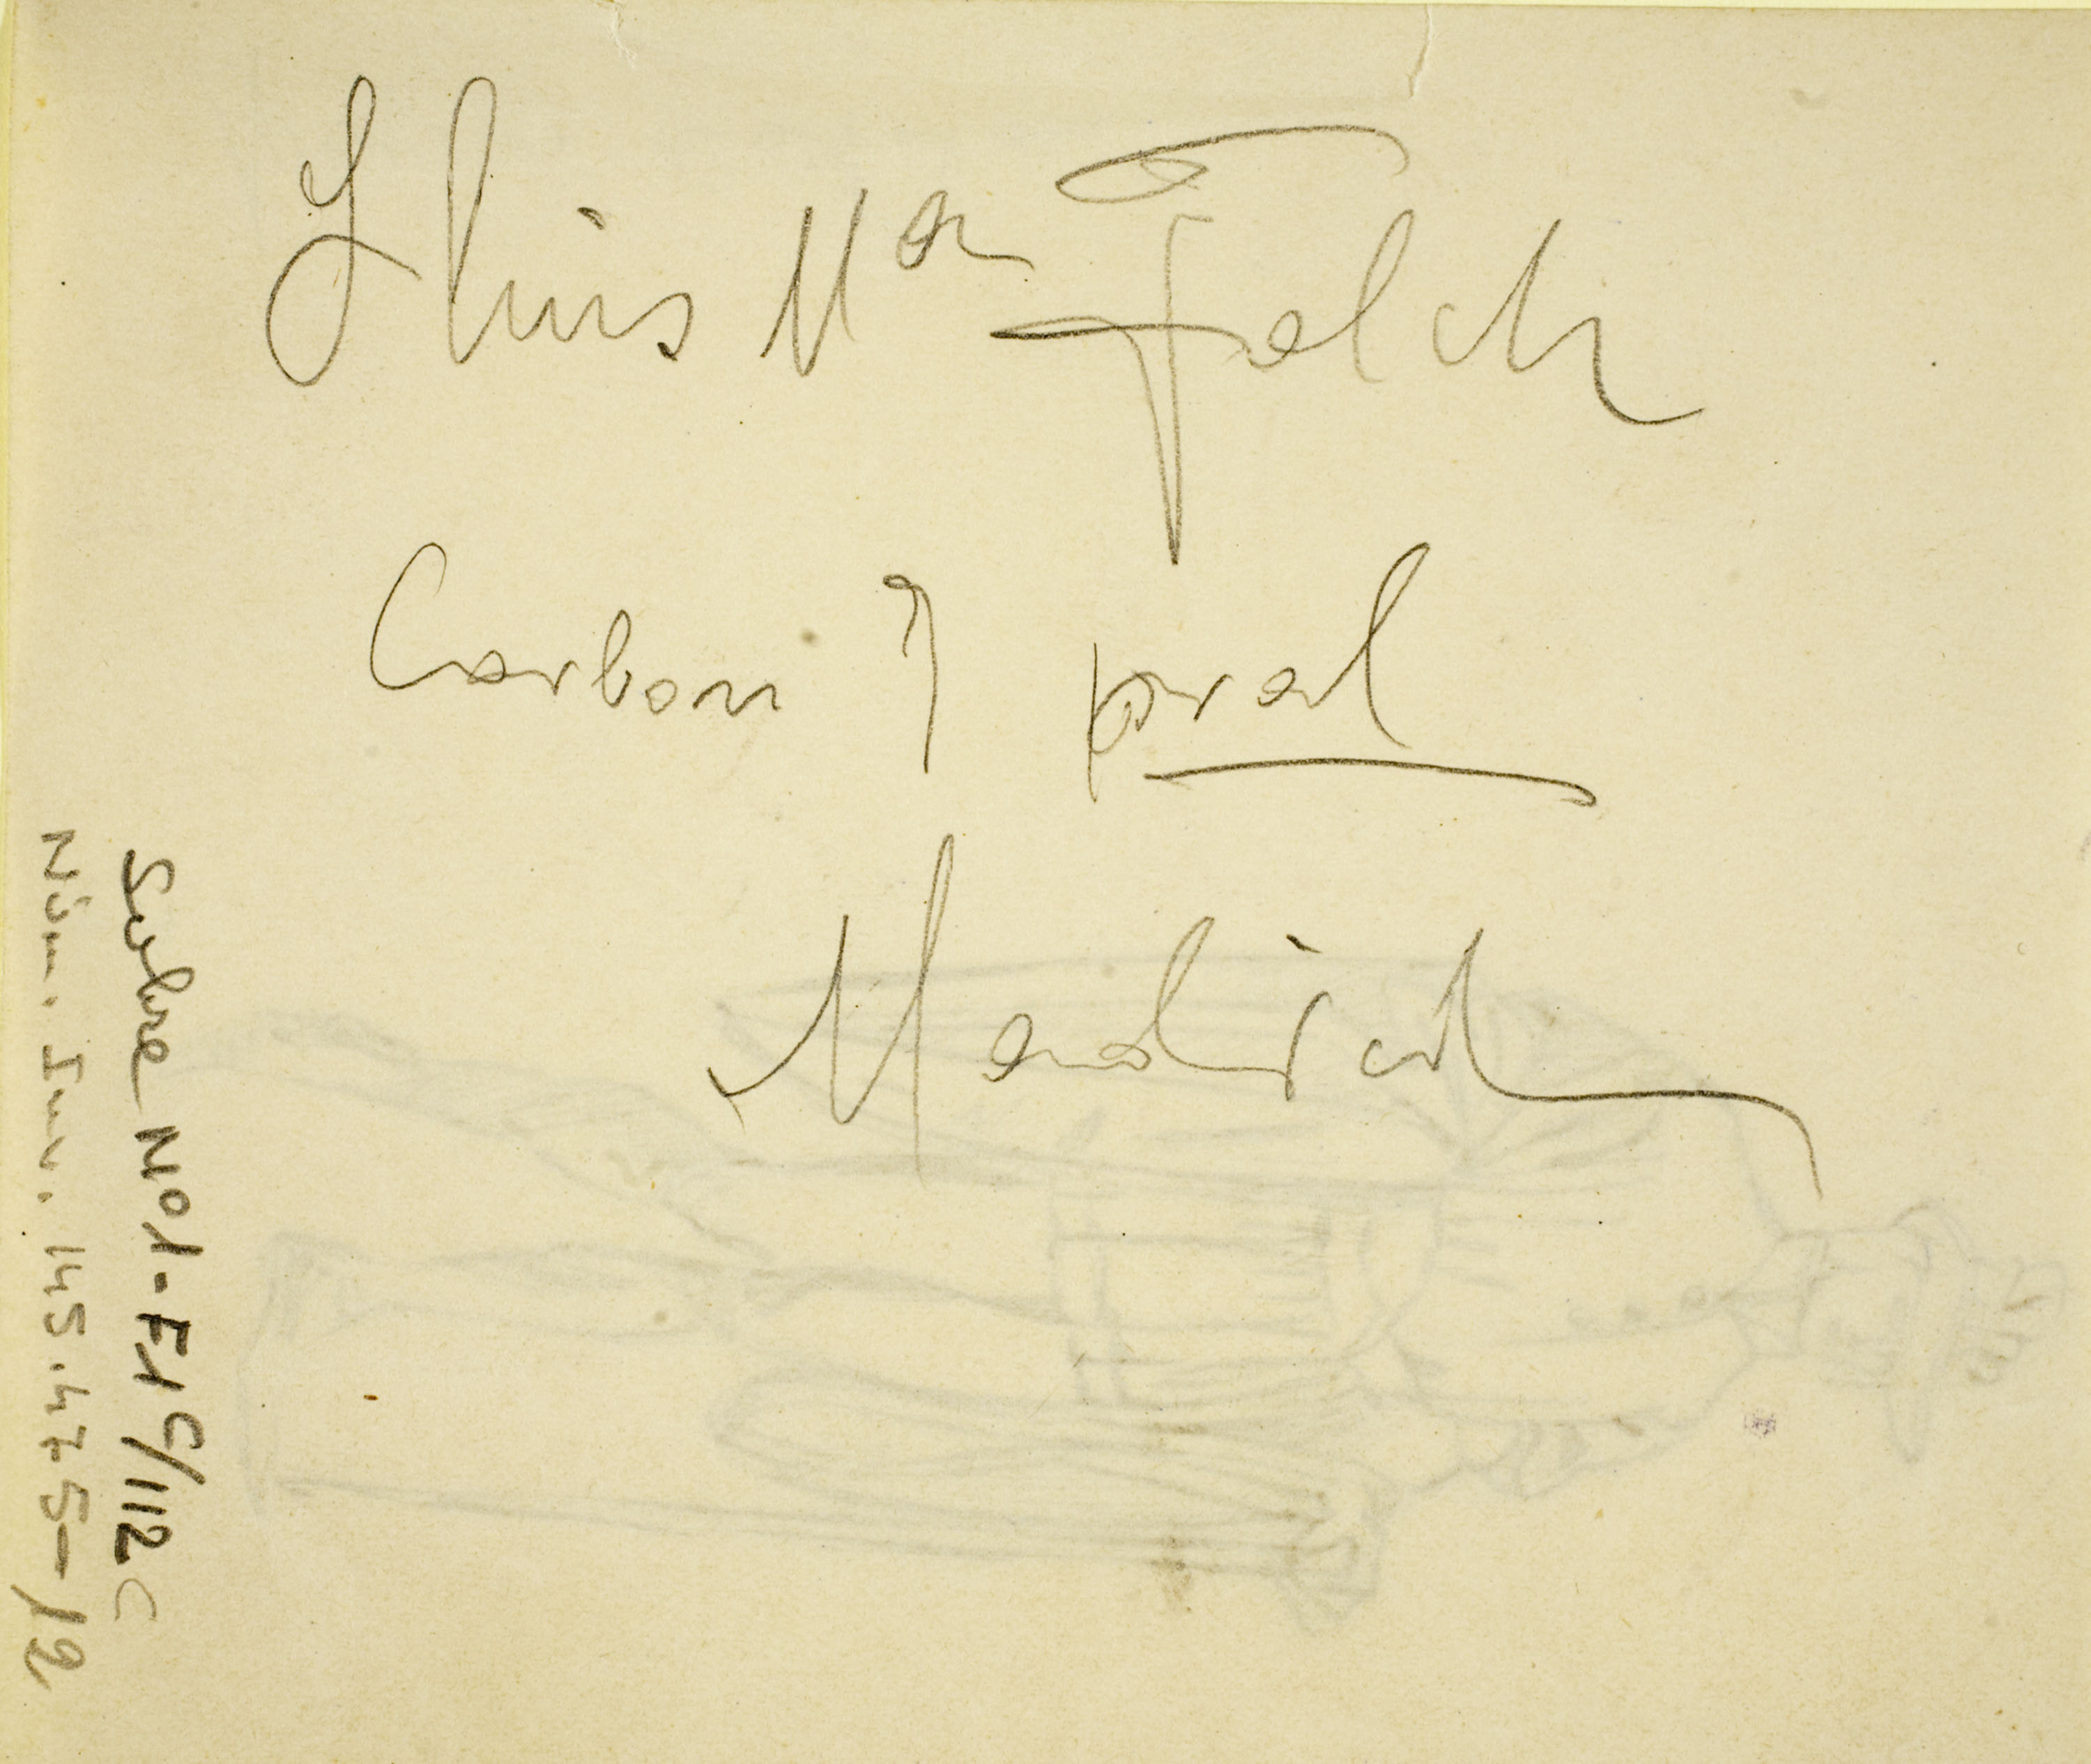 Lluis Mª Folch
Carbon 7 pral
Madrid
Sobre NO1-F1C/112 C
Núm. Inv. 145.475-12